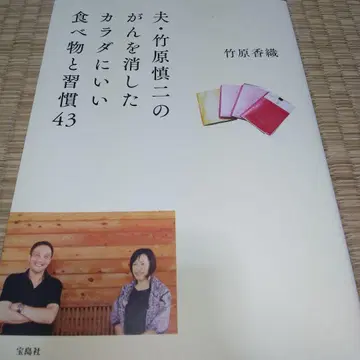 夫・竹原慎二の
がんを消した
カラダにいい
食べ物と習慣43
竹原香織
宝島社